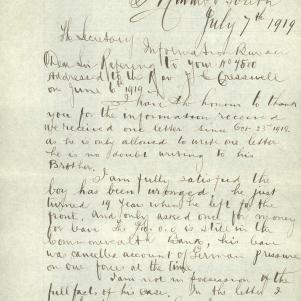 South
July 7th 1919
The Secretary
Information Bureau
Dear Sir Refering to your No 4800
Addressed to the Rev J Cresswell
on June 6th 1919
I have the honour to thank
you for the information received
we received one letter since Oct 23rd 1918.
as he is only allowed to write one letter
he is no doubt writing to his
Brother.
I am fully satisfied the
boy has been wronged. he just
turned 19 years when he left for the
front, and only asked once for money
for leave the is still in the
Commonwealth Bank, his leave
was cancelled account of German pressure
on our force at the time
I am not in possession of the
full facts of his case. In the letter I